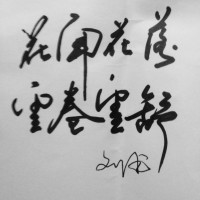 花开花落
云卷云舒